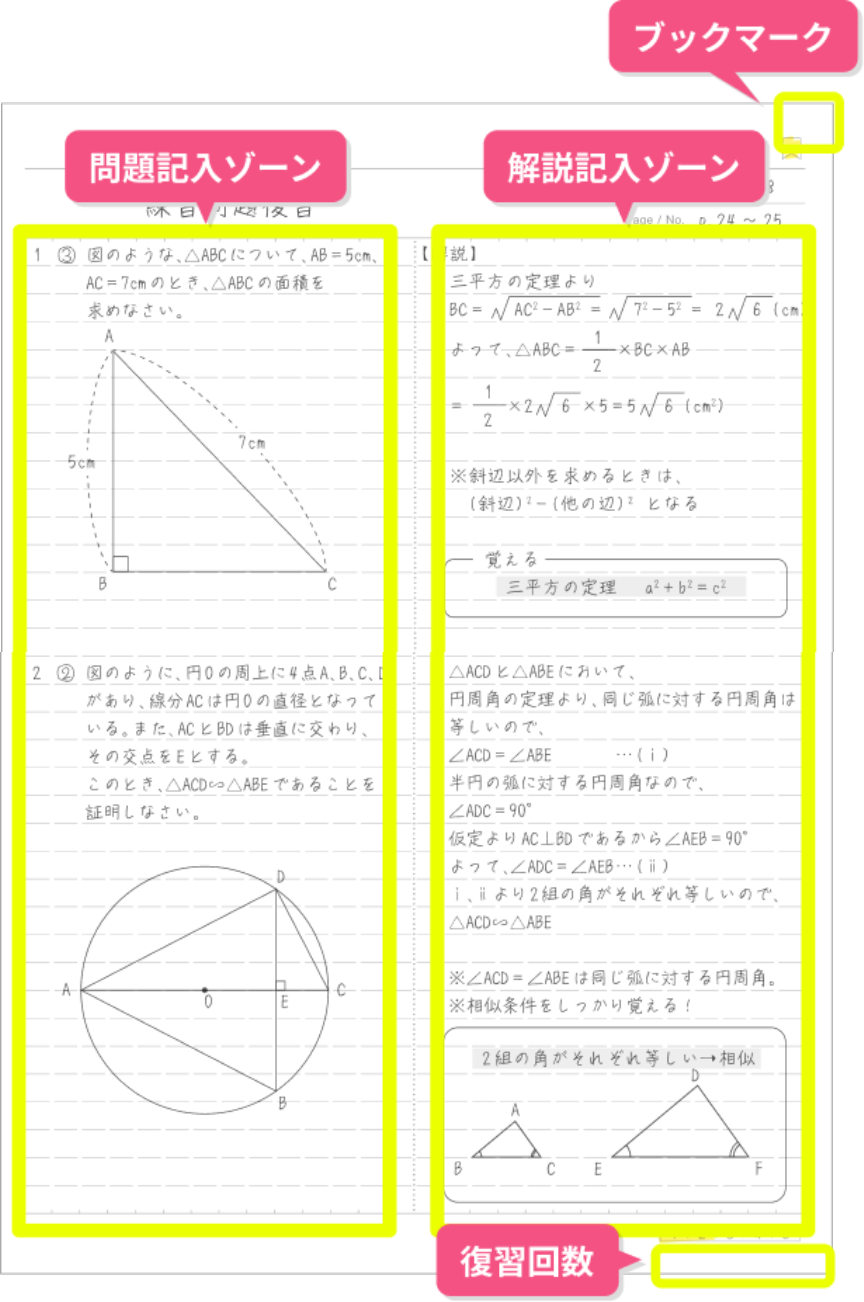 ブックマーク
問題記入ゾーン
解説記入ゾーン
練習問題復習
age / No. p. 24 ～ 25
1 ③ 図のような、△ABCについて、AB=5cm、
AC=7cmのとき、△ABCの面積を
求めなさい。
A
5cm
7cm
B
C
2 ② 図のように、円Oの周上に4点A、B、C、D
があり、線分ACは円Oの直径となって
いる。また、ACとBDは垂直に交わり、
その交点をEとする。
このとき、△ACD∽△ABEであることを
証明しなさい。
D
A
O
E
C
B
【解説】
三平方の定理より
BC = √AC²-AB² = √7²-5² = 2√6 (cm
よって、△ABC = 1/2 ×BC×AB
= 1/2 ×2√6 ×5=5√6 (cm²)
※斜辺以外を求めるときは、
(斜辺)²-(他の辺)² となる
覚える
三平方の定理 a²+b²=c²
△ACDと△ABEにおいて、
円周角の定理より、同じ弧に対する円周角は
等しいので、
∠ACD=∠ABE …(ⅰ)
半円の弧に対する円周角なので、
∠ADC=90°
仮定よりAC⊥BDであるから∠AEB=90°
よって、∠ADC=∠AEB…(ⅱ)
ⅰ、ⅱより2組の角がそれぞれ等しいので、
△ACD∽△ABE
※∠ACD=∠ABEは同じ弧に対する円周角。
※相似条件をしっかり覚える！
2組の角がそれぞれ等しい→相似
A
B
C
D
E
F
復習回数